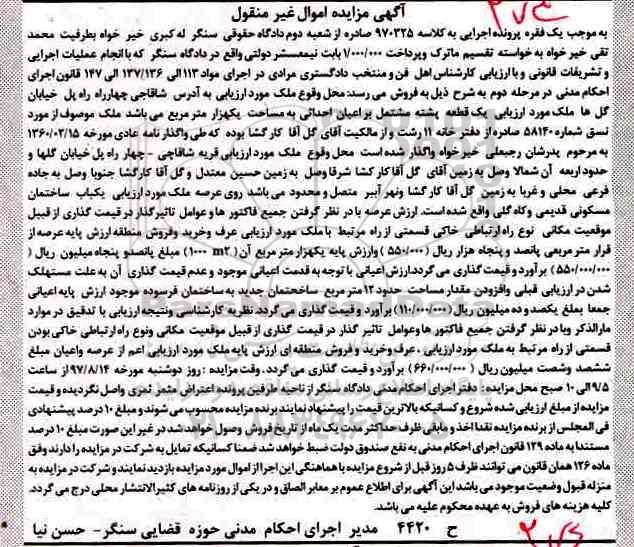 آگهی مزایده اموال غیر منقول
به موجب یک فقره پرونده اجرایی به کلاسه ۹۷۰۳۲۵ صادره از شعبه دوم دادگاه حقوقی سنگر له کبری خیر خواه بطرفیت محمد
تقی خیر خواه به خواسته تقسیم ماترک وپرداخت ۱/۰۰۰/۰۰۰ بابت نیمعسشر دولتی واقع در دادگاه سنگر که با انجام عملیات اجرایی
و تشریفات قانونی و با ارزیابی کارشناس اهل فن و منتخب دادگستری مرادی در اجرای مواد ۱۱۳ الی ۱۳۷/۱۳۶ الی ۱۴۷ قانون اجرای
احکام مدنی در مرحله دوم به شرح ذیل به فروش می رسد: محل وقوع ملک مورد ارزیابی به آدرس شاقاجی چهارراه راه پل خیابان
گل ها ملک مورد ارزیابی یک قطعه پشته مشتمل بر اعیان احداثی به مساحت یکهزار متر مربع می باشد ملک موصوف از مورد
نسق شماره ۵۸۱۴۰ صادره از دفتر خانه ۱۱ رشت و از مالکیت آقای گل آقا کارگشا بوده که طی واگذار نامه عادی مورخه ۱۳۶۰/۰۲/۱۵
به مرحوم پدرشان رجبعلی خیر خواه واگذار شده است محل وقوع ملک مورد ارزیابی قریه شاقاجی -چهار راه پل خیابان گلها و
حدود اربعه آن شمالا وصل به زمین آقای گل آقا کار کشا شرقا وصل به زمین حسین معتدل و گل آقا کارگشا جنوبا وصل به جاده
فرعی محلی و غربا به زمین گل آقا کارگشا ونهر آببر متصل و محدود می باشد روی عرصه ملک مورد ارزیابی یکباب ساختمان
مسکونی قدیمی وکاه گلی واقع شده است. ارزش عرصه با در نظر گرفتن جمیع فاکتور ها و عوامل تاثیرگذار در قیمت گذاری از قبیل
موقعیت مکانی نوع راه ارتباطی خاکی قسمتی از راه مرتبط با ملک مورد ارزیابی عرف وخرید وفروش منطقه ارزش پایه عرصه از
قرار متر مربعی پانصد و پنجاه هزار ریال (۵۵۰/۰۰۰) وارزش پایه یکهزار متر مربع آن (۱۰۰۰ m2) مبلغ پانصدو پنجاه میلیون ریال (
۵۵۰/۰۰۰/۰۰۰) برآورد و قیمت گذاری می گردد.ارزش اعیانی با توجه به قدمت اعیانی موجود و عدم قیمت گذاری آن به علت مستهلک
شدن در ارزیابی قبلی وافزودن مقدار مساحت حدود ۱۲ متر مربع ساختمان جدید به ساختمان فرسوده موجود ارزش پایه اعیانی
جمعا بمبلغ یکصد و ده میلیون ریال (۱۱۰/۰۰۰/۰۰۰) برآورد و قیمت گذاری می گردد. نظریه کارشناسی ونتیجه ارزیابی با تدقیق در موارد
مارالذکر وبا در نظر گرفتن جمیع فاکتور ها وعوامل تاثیر گذار در قیمت گذاری از قبیل موقعیت مکانی ونوع راه ارتباطی خاکی بودن
قسمتی از راه مرتبط به ملک مورد ارزیابی ، عرف وخرید و فروش منطقه ای ارزش پایه ملک مورد ارزیابی اعم از عرصه واعیان مبلغ
ششصد وشصت میلیون ریال (۶۶۰/۰۰۰/۰۰۰) برآورد و قیمت گذاری می گردد. وقت مزایده : روز دوشنبه مورخه ۹۷/۸/۱۴ از ساعت
۹/۵ الی ۱۰ صبح محل مزایده: دفتر اجرای احکام مدنی دادگاه سنگر از ناحیه طرفین پرونده اعتراض مثمر ثمری واصل نگردیده و قیمت
مزایده از مبلغ ارزیابی شده شروع و کسانیکه بالاترین قیمت را پیشنهاد نمایند برنده مزایده محسوب می شوند و مبلغ ۱۰ درصد پیشنهادی
فی المجلس از برنده مزایده نقدا اخذ و مابقی ظرف حداکثر مدت یک ماه از تاریخ فروش وصول خواهد شد در غیر این صورت مبلغ ۱۰ درصد
مستندا به ماده ۱۲۹ قانون اجرای احکام مدنی به نفع صندوق دولت ضبط خواهد شد ضمنا کسانیکه تمایل به شرکت در مزایده را دارند وفق
ماده ۱۲۶ همان قانون می توانند ظرف ۵ روز قبل از شروع مزایده با هماهنگی این اجرا از اموال مورد مزایده بازدید نمایند و شرکت در مزایده به
منزله قبول وضعیت موجود می باشد این آگهی برای اطلاع عموم بر معابر الصاق و در یکی از روزنامه های کثیرالانتشار محلی درج می گردد.
کلیه هزینه های فروش به عهده محکوم علیه می باشد.
ح ۴۴۲۰ مدیر اجرای احکام مدنی حوزه قضایی سنگر- حسن نیا